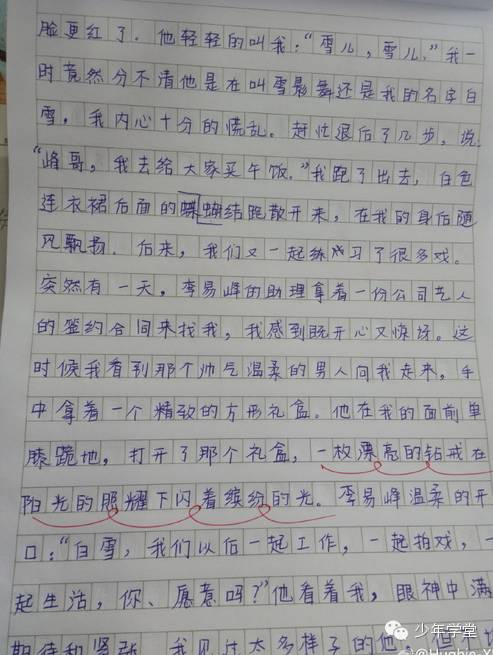 脸更红了。他轻轻的叫我:“雪儿,雪儿。”我一
时竟然分不清他是在叫雪影舞还是我的名字白
雪。我内心十分的慌乱。赶忙退后了几步,说:
“峰哥,我去给大家买午饭。”我跑了出去,白色
连衣裙后面的蝴结跑散开来,在我的身后随
风飘扬。后来,我们又一起练习了很多戏。
突然有一天,李易峰的助理拿着一份公司艺人
的签约合同来找我,我感到既开心又惊讶。这
时候我看到那个帅气温柔的男人向我走来,手
中拿着一个精致的方形礼盒。他在我的面前单
膝跪地,打开了那个礼盒,一枚漂亮的钻戒在
阳光的照耀下闪着缤纷的光。李易峰温柔的开
口:“白雪,我们以后一起工作,一起拍戏,一
起生活,你、愿意吗?”他看着我,眼神中满
期待和紧张。我见过太多样子的他,但
少年学堂
@Hughie-Y